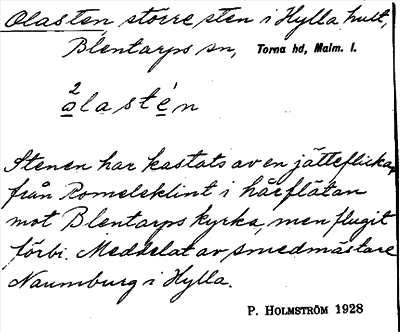 Olastén, större sten i Hylla hult,
Blentarps sn, Torna hd, Malm. l.
2
olastén
Stenen har kastats av en jätteflicka,
från Romeleklint i hårflätan
mot Blentarps kyrka, men flugit
förbi. Meddelat av smedmästare
Naumburg i Hylla.
P. HOLMSTRÖM 1928